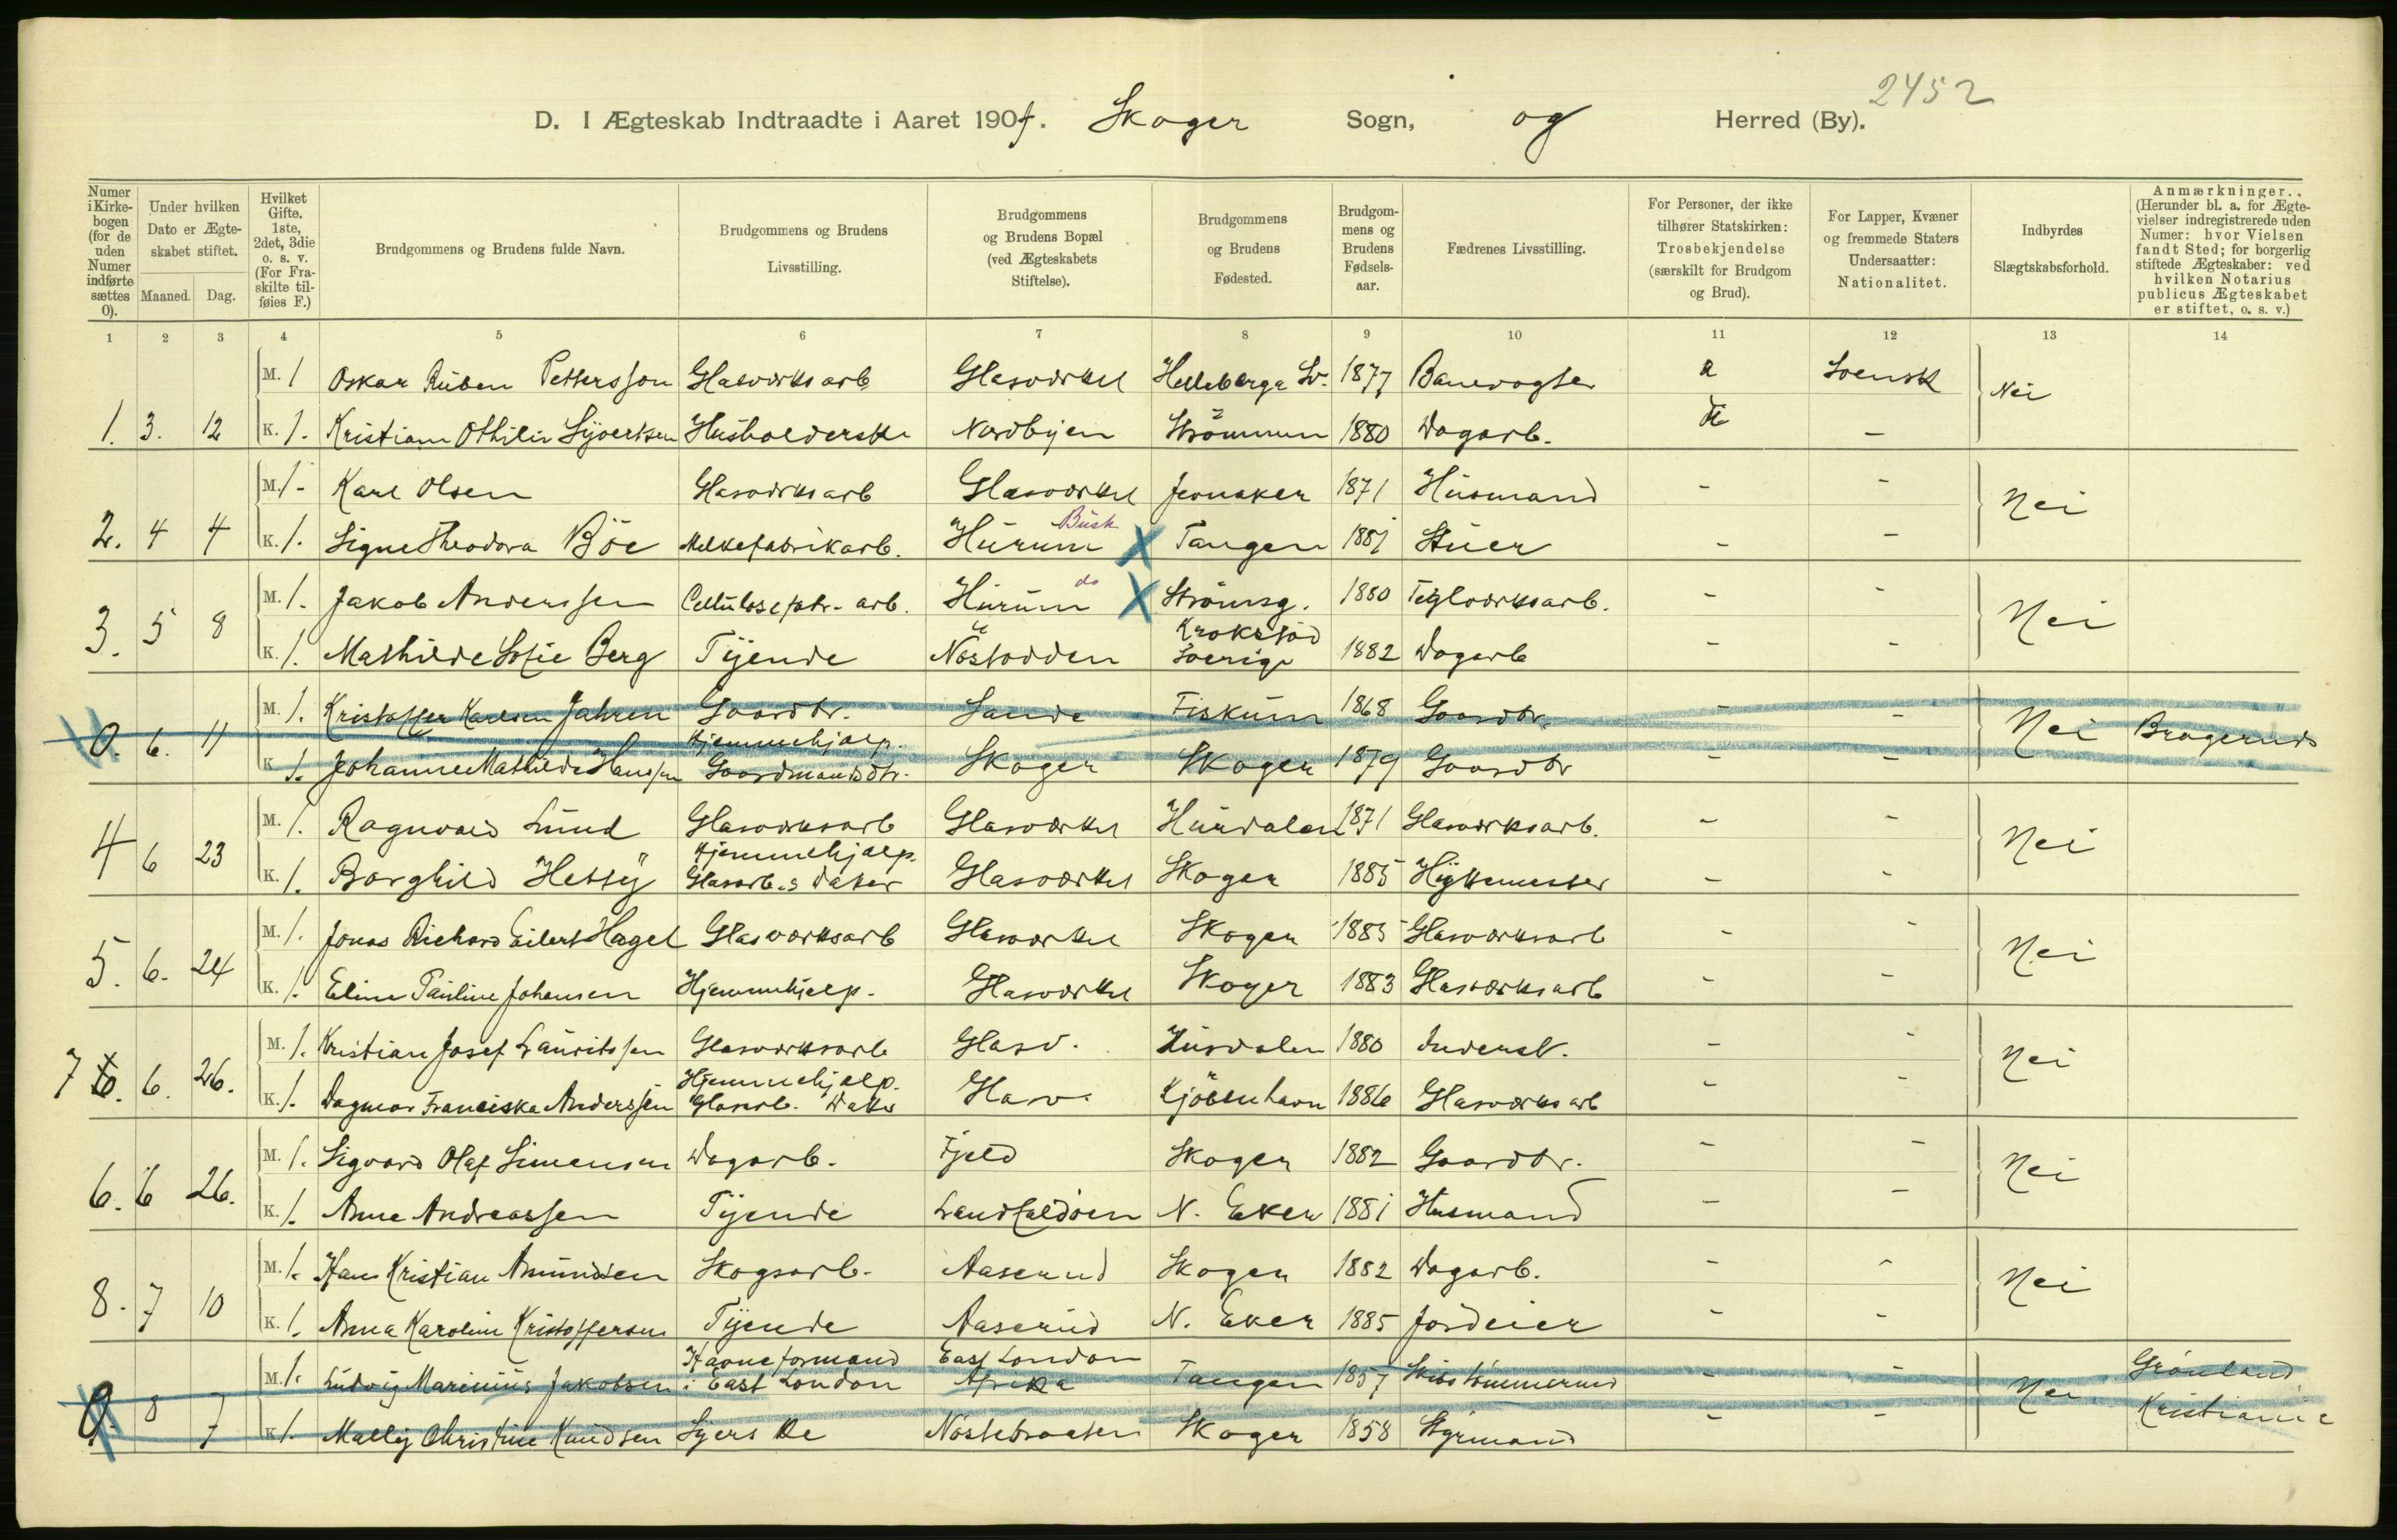 2452
D. I Ægteskab Indtraadte i Aaret 1904. Skoger Sogn, og Herred (By).
Numer i Kirkebogen (for de uden Numer indførte sættes 0).
Under hvilken Dato er Ægteskabet stiftet.
Maaned. Dag.
Hvilket Gifte. 1ste, 2det, 3die o. s. v. (For Fraskilte tilføies F.)
Brudgommens og Brudens fulde Navn.
Brudgommens og Brudens Livsstilling.
Brudgommens og Brudens Bopæl (ved Ægteskabets Stiftelse).
Brudgommens og Brudens Fødested.
Brudgommens og Brudens Fødselsaar.
Fædrenes Livsstilling.
For Personer, der ikke tilhører Statskirken: Trosbekjendelse (særskilt for Brudgom og Brud).
For Lapper, Kvæner og fremmede Staters Undersaatter: Nationalitet.
Indbyrdes Slægtskabsforhold.
Anmærkninger. (Herunder bl. a. for Ægtevielser indregistrerede uden Numer: hvor Vielsen fandt Sted; for borgerlig stiftede Ægteskaber: ved hvilken Notarius publicus Ægteskabet er stiftet, o. s. v.)
1 2 3 4 5 6 7 8 9 10 11 12 13 14
M. 1 Oskar Rüben Pettersson Glasværksarb Glasværket Helleberga Sv. 1877 Banevogter a Svensk Nei
1. 3. 12 K. 1. Kristiane Othilie Syvertsen Husholderske Nordbyen Strömmen 1880 Dagarb. –
M. 1. Karl Olsen Glasværksarb Glasværket Jevnaker 1871 Husmand - - Nei
2. 4 4 K. 1. Signe Theodora Böe Melkefabrikarb. Hurum Busk X Tangen 1881 Stuer - -
M. 1. Jakob Anderssen Cellulosefabr.-arb. Hurum do X Strömsg. 1880 Teglværksarb. - - Nei
3. 5 8 K. 1. Mathilde Sofie Berg Tjende Nöstodden Krokstad Sverige 1882 Dagarb - -
M. 1. Kristoffer Karlsen Jahren Gaardbr. Sande Fiskum 1868 Gaardbr. - - Nei Bragernes
0. 6. 11 K. 1. Johanne Mathilde Hanssen Hjemmehjælp. Gaardmandsdtr. Skoger Skoger 1879 Gaardbr - -
M. 1. Ragnvald Lund Glasværksarb Glasværket Hurdalen 1871 Glasværksarb. - - Nei
4 6 23 K. 1. Borghild Hetty Hjemmehjælp. Glasarb.s Datter Glasværket Skoger 1885 Hyttemester - -
M. 1. Jonas Richard Eilert Hagel Glasværksarb Glasværket Skoger 1885 Glasværksarb - - Nei
5. 6. 24 K. 1. Eline Pauline Johansen Hjemmehjælp. Glasværket Skoger 1883 Glasværksarb - -
M. 1. Kristian Josef Lauritssen Glasværksarb Glasv. Hurdalen 1880 Inderst. - - Nei
7 6. 26. K. 1. Dagmar Franciska Anderssen Hjemmehjælp. Glasarb. Datter Glasv. Kjöbenhavn 1886 Glasværksarb - -
M. 1. Sigvard Olaf Simensen Dagarb. Fjeld Skoger 1882 Gaardbr. - - Nei
6. 6 26. K. 1. Anne Andreassen Tjende Landfaldöen N. Eker 1881 Husmand - -
M. 1. Hans Kristian Amundsen Skogsarb. Aaserud Skoger 1882 Dagarb. - - Nei
8. 7 10 K. 1. Anna Karoline Kristoffersen Tjende Aaserud N. Eker 1885 Jordeier - -
M. 1. Ludvig Marinius Jakobsen Havneformand i East London East London Afrika Tangen 1857 Skibstömmermand - - Nei Grönland Kristiania
0 8 7 K. 1. Mally Christine Knudsen Syerske Nöstebraaten Skoger 1858 Styrmand - -